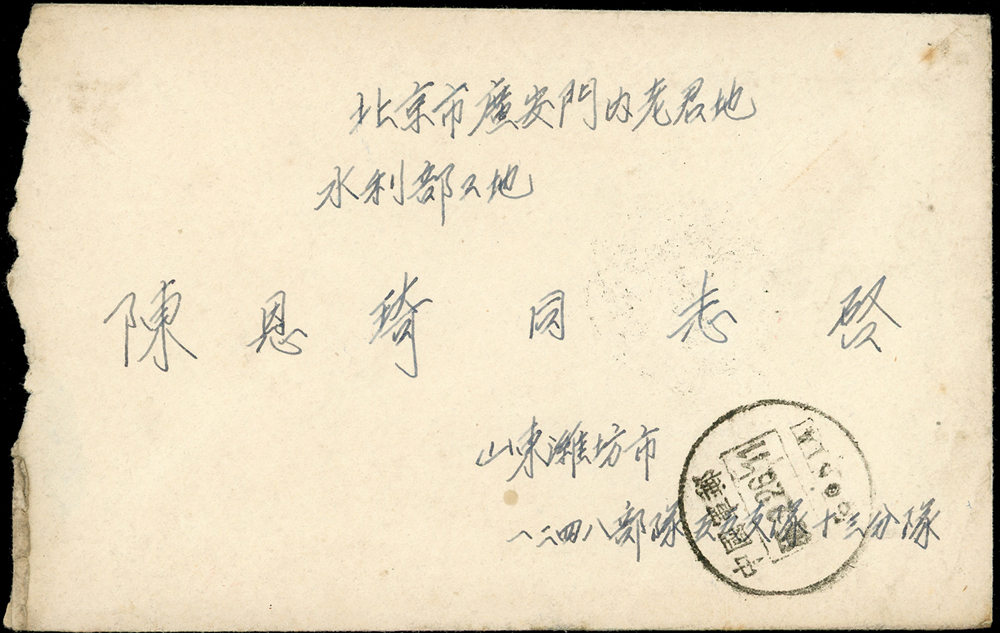 北京市廣安門内老君地
水利部工地
陳恩琦同志啓
山東濰坊市
一二四八部隊 支隊十三分隊
中國